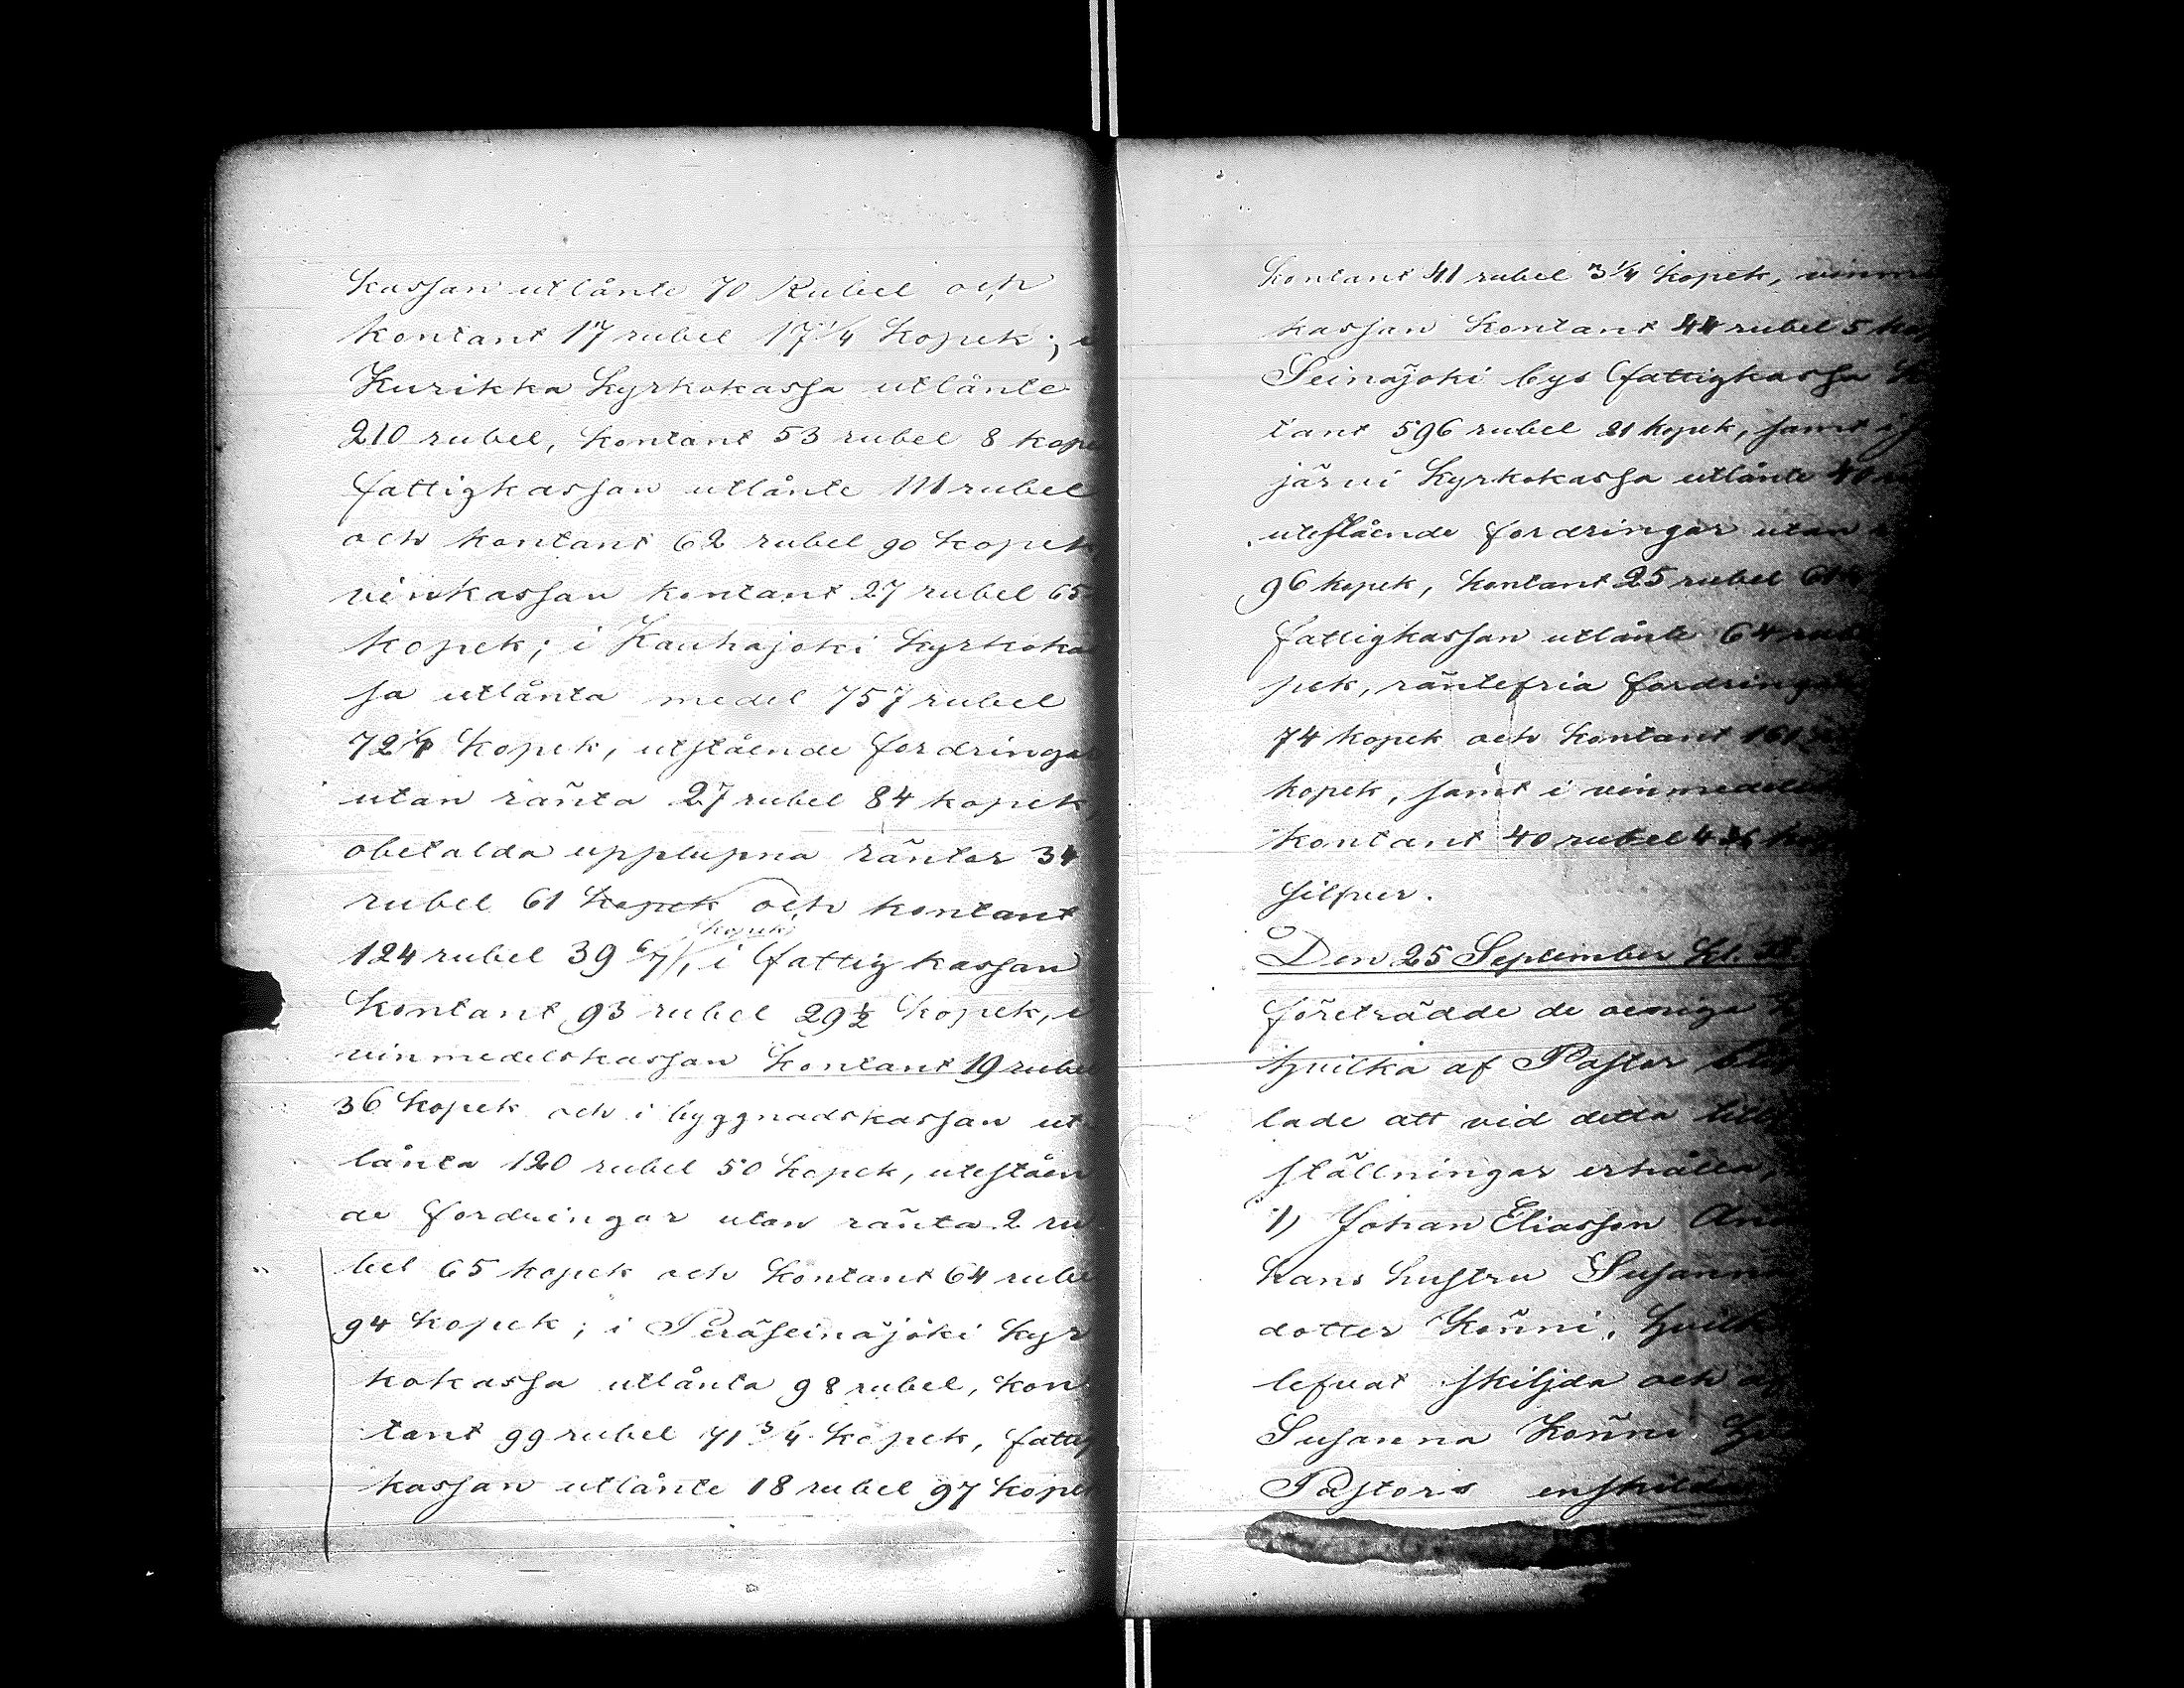 kassan utlånte 70 Rubel och
kontant 17 rubel 17 1/4 kopek; i
Kurikka kyrkokassa utlånte
210 rubel, kontant 53 rubel 8 kope
fattigkassan utlånte 111 rubel
och kontant 62 rubel 90 kopek
vinkassan kontant 27 rubel 65
kopek; i Kauhajoki kyrkoka
sa utlånta medel 757 rubel
72 1/4 kopek, utstående fordringar
utan ränta 27 rubel 84 kopek,
obetalda upplupna räntor 34
rubel 61 kopek och kontant
124 rubel 39 6/7 kopek, i fattigkassan
kontant 93 rubel 29 1/2 kopek, i
vinmedelskassan kontant 19 rubel
36 kopek och i byggnadskassan ut-
lånta 120 rubel 50 kopek, uteståen
de fordringar utan ränta 2 ru
bel 65 kopek och kontant 64 rube
94 kopek; i Peräseinäjoki kyr
kokassa utlånta 98 rubel, kon
tant 99 rubel 71 3/4 kopek, fattig
kassan utlånte 18 rubel 97 kopek
kontant 41 rubel 3 1/4 kopek, vinm
kassan kontant 44 rubel 5 kop
Seinäjoki bys fattigkassa
tant 596 rubel 21 kopek, samt i
järvi kyrkokassa utlånte 40
utestående fordringar utan
96 kopek, kontant 25 rubel
fattigkassan utlånte 64 rub
pek, räntefria fordringar
74 kopek och kontant 161
kopek, samt i vinmedels
kontant 40 rubel
silfver.
Den 25 September kl.
företrädde de oeniga
hvilka af Pastor
lade att vid detta till
ställningar erhålla,
1) Johan Eliasson
hans hustru Susanna
dotter Könni, hvilk
lefvat skiljda och
Susanna Könni
Pastors enskilda